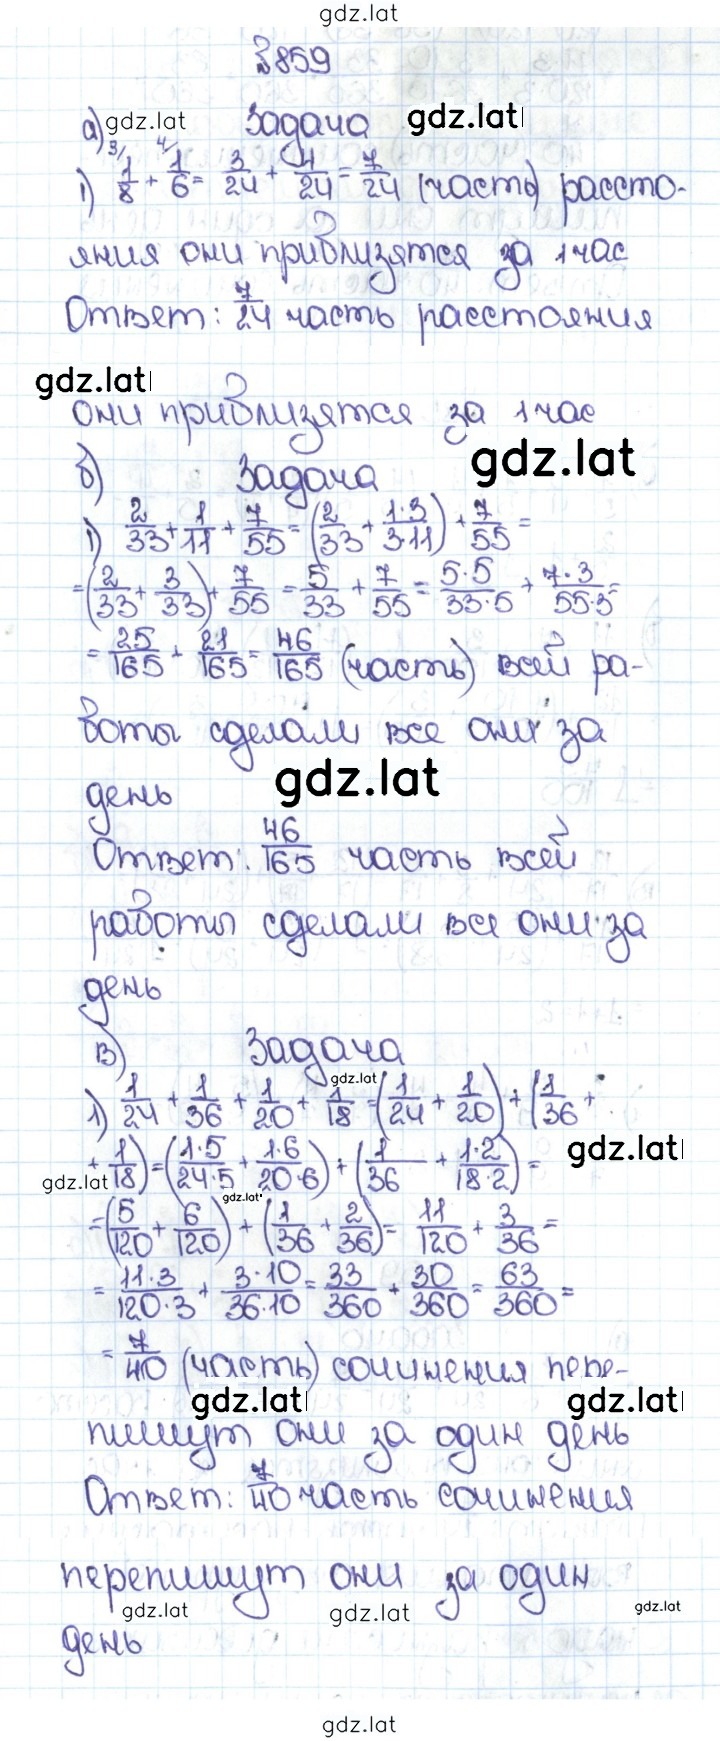 gdz.lat
№859
а) gdz.lat Задача gdz.lat
1) 1/8 3/ + 1/6 4/ = 3/24 + 4/24 = 7/24 (часть) рассто-
яния они приблизятся за 1 час
Ответ: 7/24 часть расстояния
gdz.lat
они приблизятся за 1 час
б) Задача gdz.lat
1) 2/33 + 1/11 + 7/55 = (2/33 + 1·3/3·11) + 7/55 =
= (2/33 + 3/33) + 7/55 = 5/33 + 7/55 = 5·5/33·5 + 7·3/55·3 =
= 25/165 + 21/165 = 46/165 (часть) всей ра-
боты сделали все они за
день gdz.lat
Ответ: 46/165 часть всей
работы сделали все они за
день
в) Задача
gdz.lat
1) 1/24 + 1/36 + 1/20 + 1/18 = (1/24 + 1/20) + (1/36 +
+ 1/18) = (1·5/24·5 + 1·6/20·6) + (1/36 + 1·2/18·2) = gdz.lat
gdz.lat gdz.lat
= (5/120 + 6/120) + (1/36 + 2/36) = 11/120 + 3/36 =
= 11·3/120·3 + 3·10/36·10 = 33/360 + 30/360 = 63/360 =
= 7/40 (часть) сочинения пере-
gdz.lat gdz.lat
пишут они за один день
Ответ: 7/40 часть сочинения
перепишут они за один
gdz.lat gdz.lat gdz.lat
день
gdz.lat